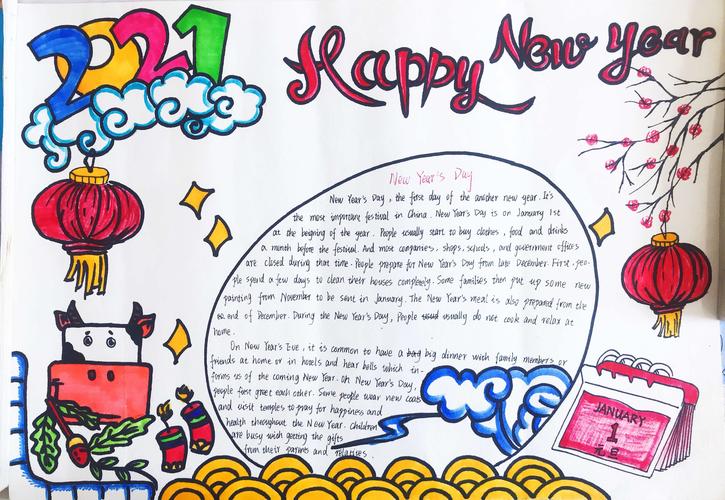 2021
Happy New Year
New Year's Day
New Year's Day, the first day of the another new year. It's
the most important festival in China. New Year's Day is on January 1st
at the beigning of the year. People usually start to buy clothes, food and drinks
a month before the festival. And most companies, shops, schools, and government offices
are closed during that time. People prepare for New Year's Day from late December. First, peo-
ple spend a few days to clean their houses completely. Some families then put up some new
painting from November to be sent in January. The New Year's meal is also prepared from the
end of December. During the New Year's Day, People usually do not cook and relax at
home.
On New Year's Eve, it is common to have a big dinner with family members or
friends at home or in hotels and hear bells which in-
forms us of the coming New Year. On New Year's Day,
people first greet each other. Some people wear new coats
and visit temples to pray for happiness and
health throughout the New Year. Children
are busy with getting the gifts
from their parents and relatives.
JANUARY
1
元旦